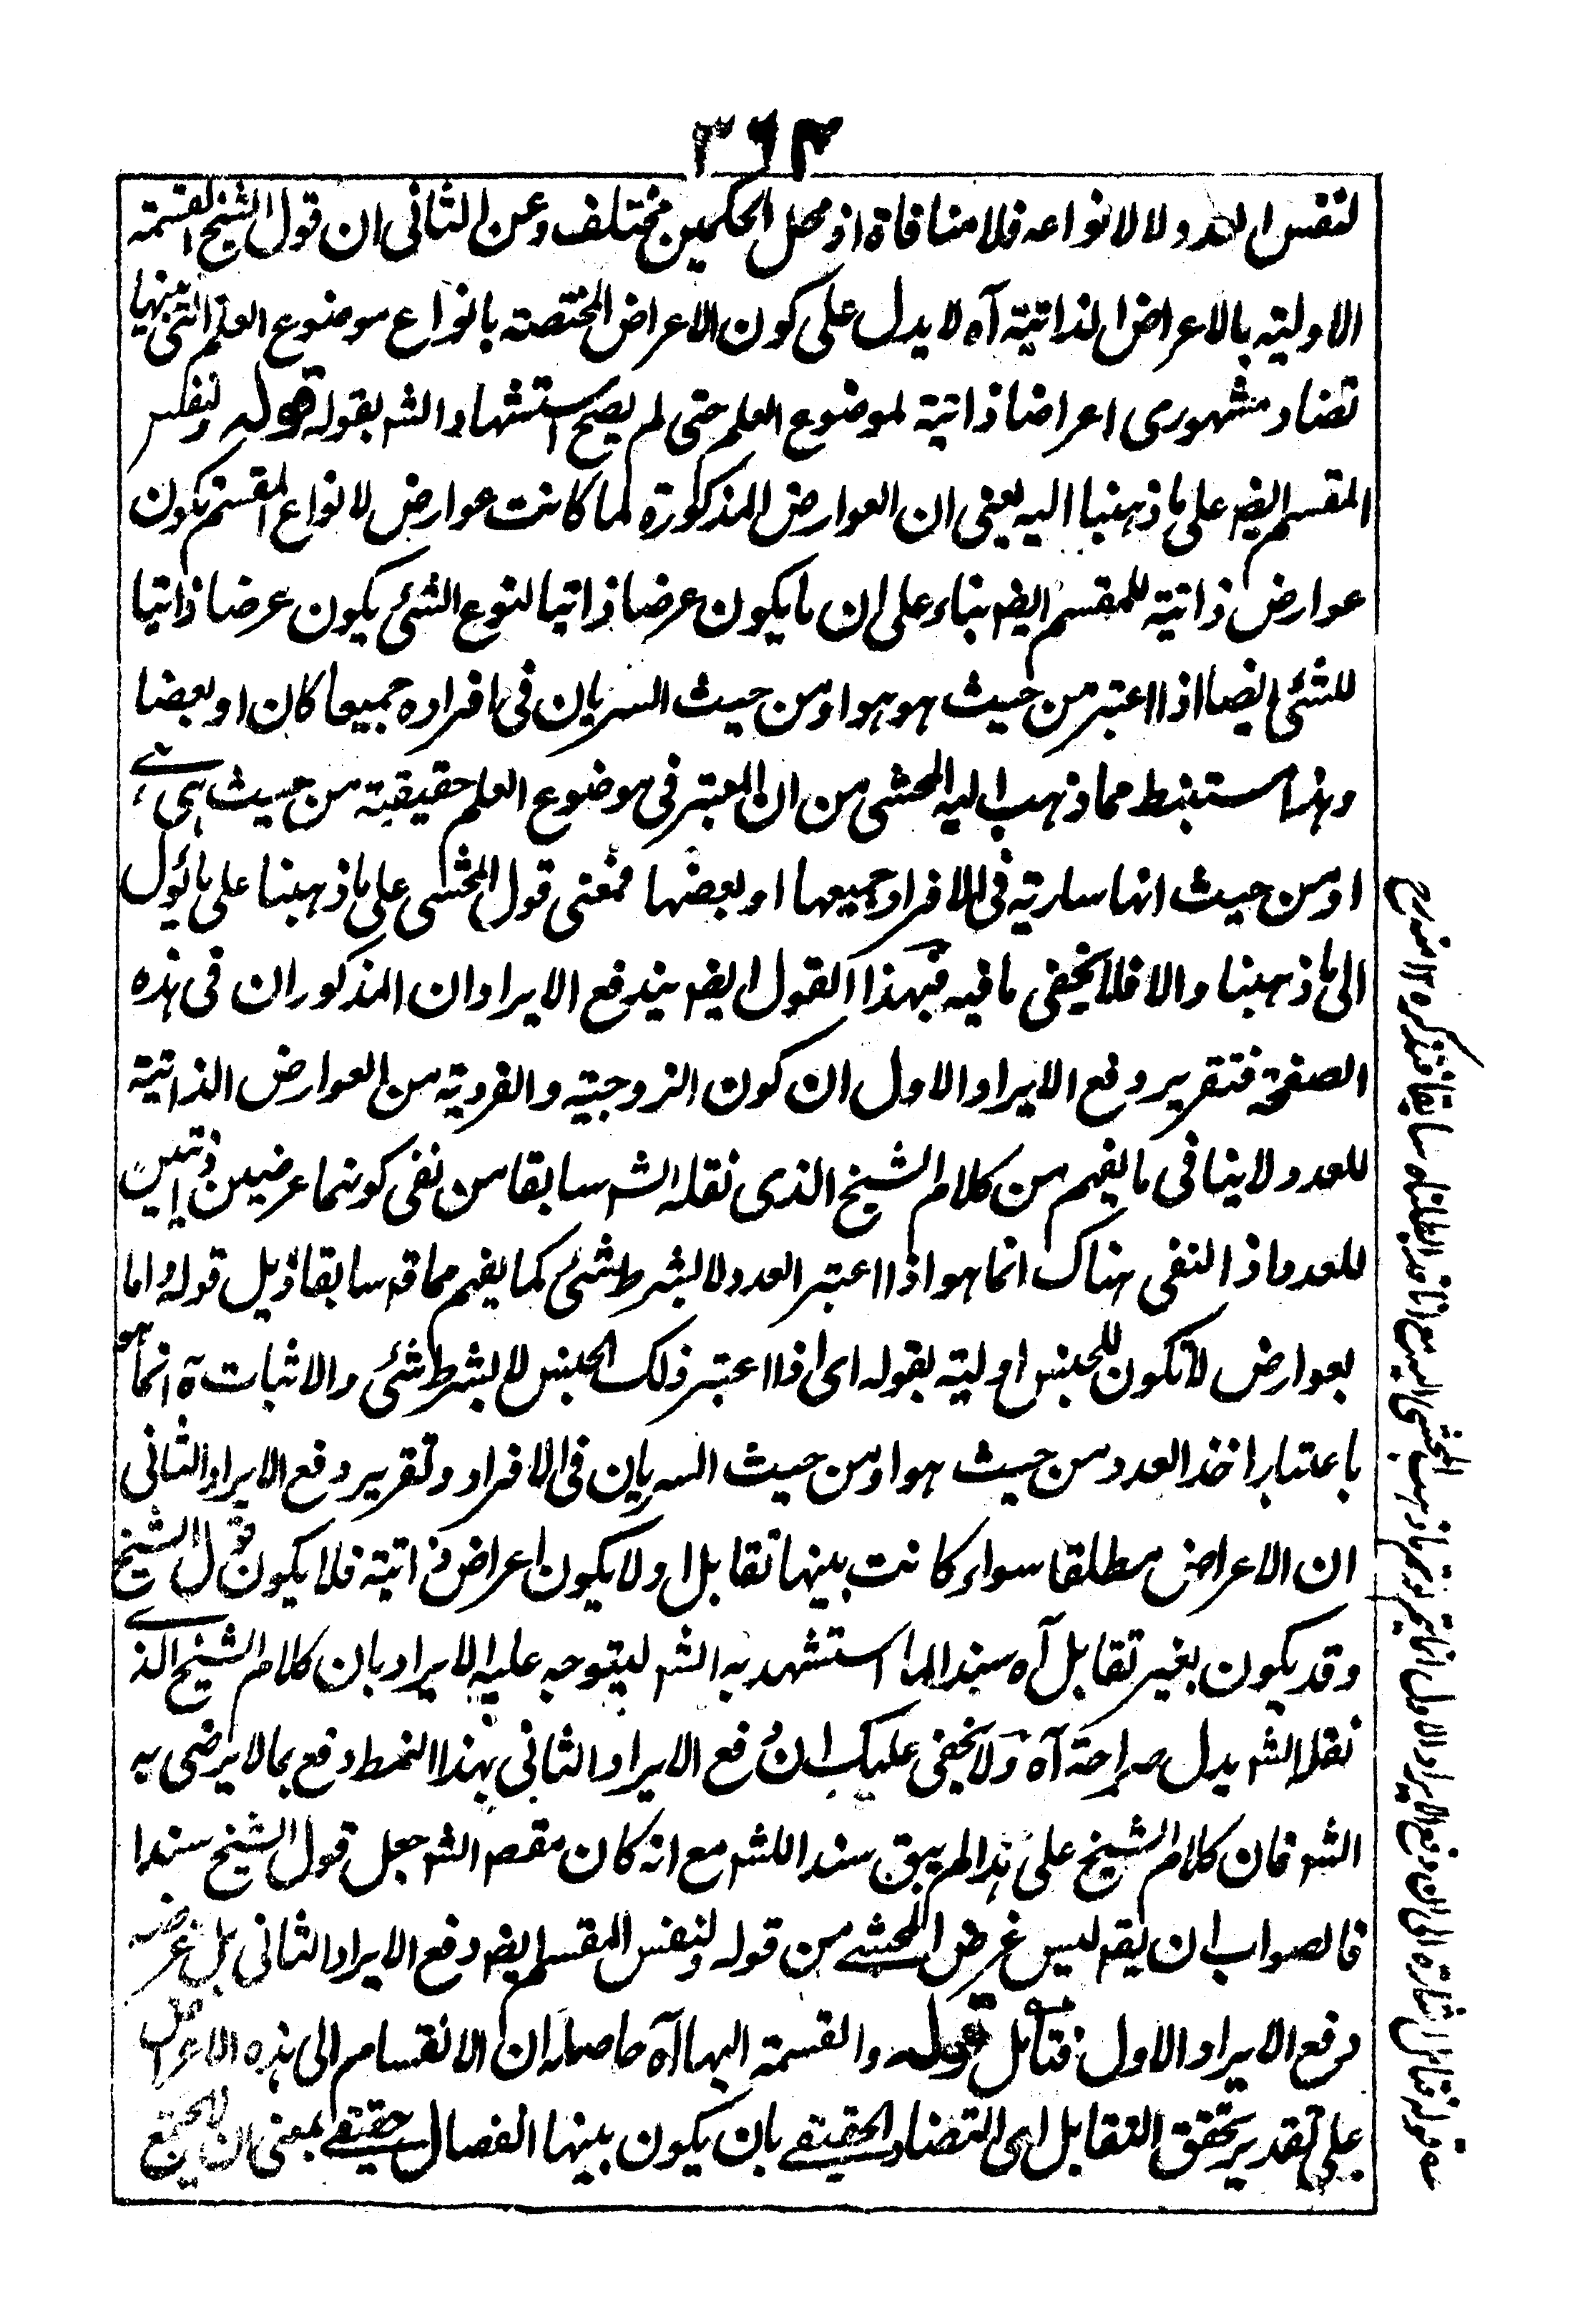 ٣٦٣
لنفس العدد ولا لانواعه فلا منافاة اذ محل الحكمين مختلف وعن الثانى ان قول الشيخ القسمة
الاولية بالاعراض الذاتية آه لا يدل على كون الاعراض المختصة بانواع موضوع العلم التى بينها
تضاد مشهورى اعراضا ذاتية لموضوع العلم حتى لم يصح استشهاد الشه بقوله قوله ولنفس
المقسم ايضه على ما ذهبنا اليه يعنى ان العوارض المذكورة لما كانت عوارض لانواع المقسم تكون
عوارض ذاتية للمقسم ايضه بناء على ان ما يكون عرضا ذاتيا لنوع الشئ يكون عرضا ذاتيا
للشئ ايضا اذا اعتبر من حيث هو هو او من حيث السريان فى افراده جميعا كان او بعضا
وهذا مستنبط مما ذهب اليه المحشى من ان المعتبر فى موضوع العلم حقيقية من حيث هى هى
او من حيث انها سارية فى الافراد جميعها او بعضها فمعنى قول المحشى على ما ذهبنا على ما يؤل
الى ما ذهبنا والا فلا يخفى ما فيه فبهذا القول ايضه يندفع الايرادان المذكوران فى هذه
الصفحة فتقرير دفع الايراد الاول ان كون الزوجية والفردية من العوارض الذاتية
للعدد لا ينافى ما يفهم من كلام الشيخ الذى نقله الشه سابقا من نفى كونهما عرضين ذاتيين
للعدد اذ النفى هناك انما هو اذا اعتبر العدد لا بشرط شئ كما يفهم مما قه سابقا ذيل قوله واما
بعوارض لا تكون للجنس اولية بقوله اى اذا اعتبر ذلك الجنس لا بشرط شئ والاثبات ه انما هو
باعتبار اخذ العدد من حيث هو او من حيث السريان فى الافراد وتقرير دفع الايراد الثانى
ان الاعراض مطلقا سواء كانت بينها تقابل او لا يكون اعراض ذاتية فلا يكون قول الشيخ
وقد يكون بغير تقابل آه سندا لما استشهد به الشه ليتوجه عليه الايراد بان كلام الشيخ الذى
نقله الشه يدل صراحة آه ولا يخفى عليك ان دفع الايراد الثانى بهذا النمط دفع بما لا يرضى به
الشه فان كلام الشيخ على هذا لم يبق سندا للشه مع انه كان مقصه الشه جعل قول الشيخ سندا
فالصواب ان يقه ليس غرض المحشى من قوله ولنفس المقسم ايضه دفع الايراد الثانى بل غرضه
دفع الايراد الاول فتأمل قوله والقسمة اليها آه حاصله ان الانقسام الى هذه الاعراض
على تقدير تحقق التقابل اى التضاد الحقيقى بان يكون بينها انفصال حقيقى بمعنى ان لا يجتمع